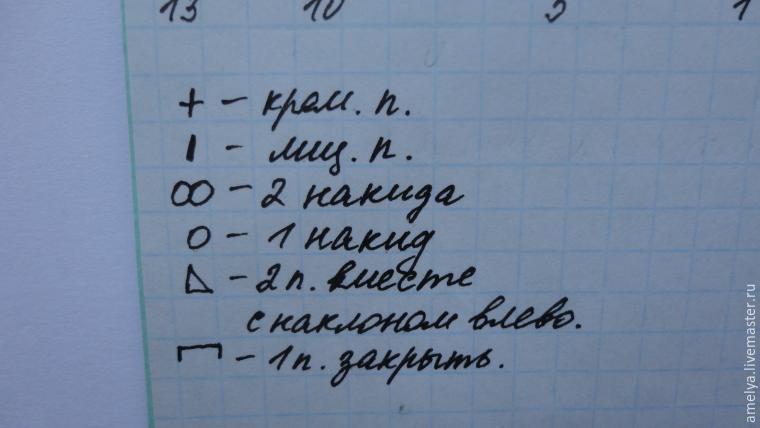 13 10 5 1
+ – кром. п.
I – лиц. п.
∞ – 2 накида
о – 1 накид
◺ – 2 п. вместе
с наклоном влево.
⊓ – 1 п. закрыть.
amelya.livemaster.ru